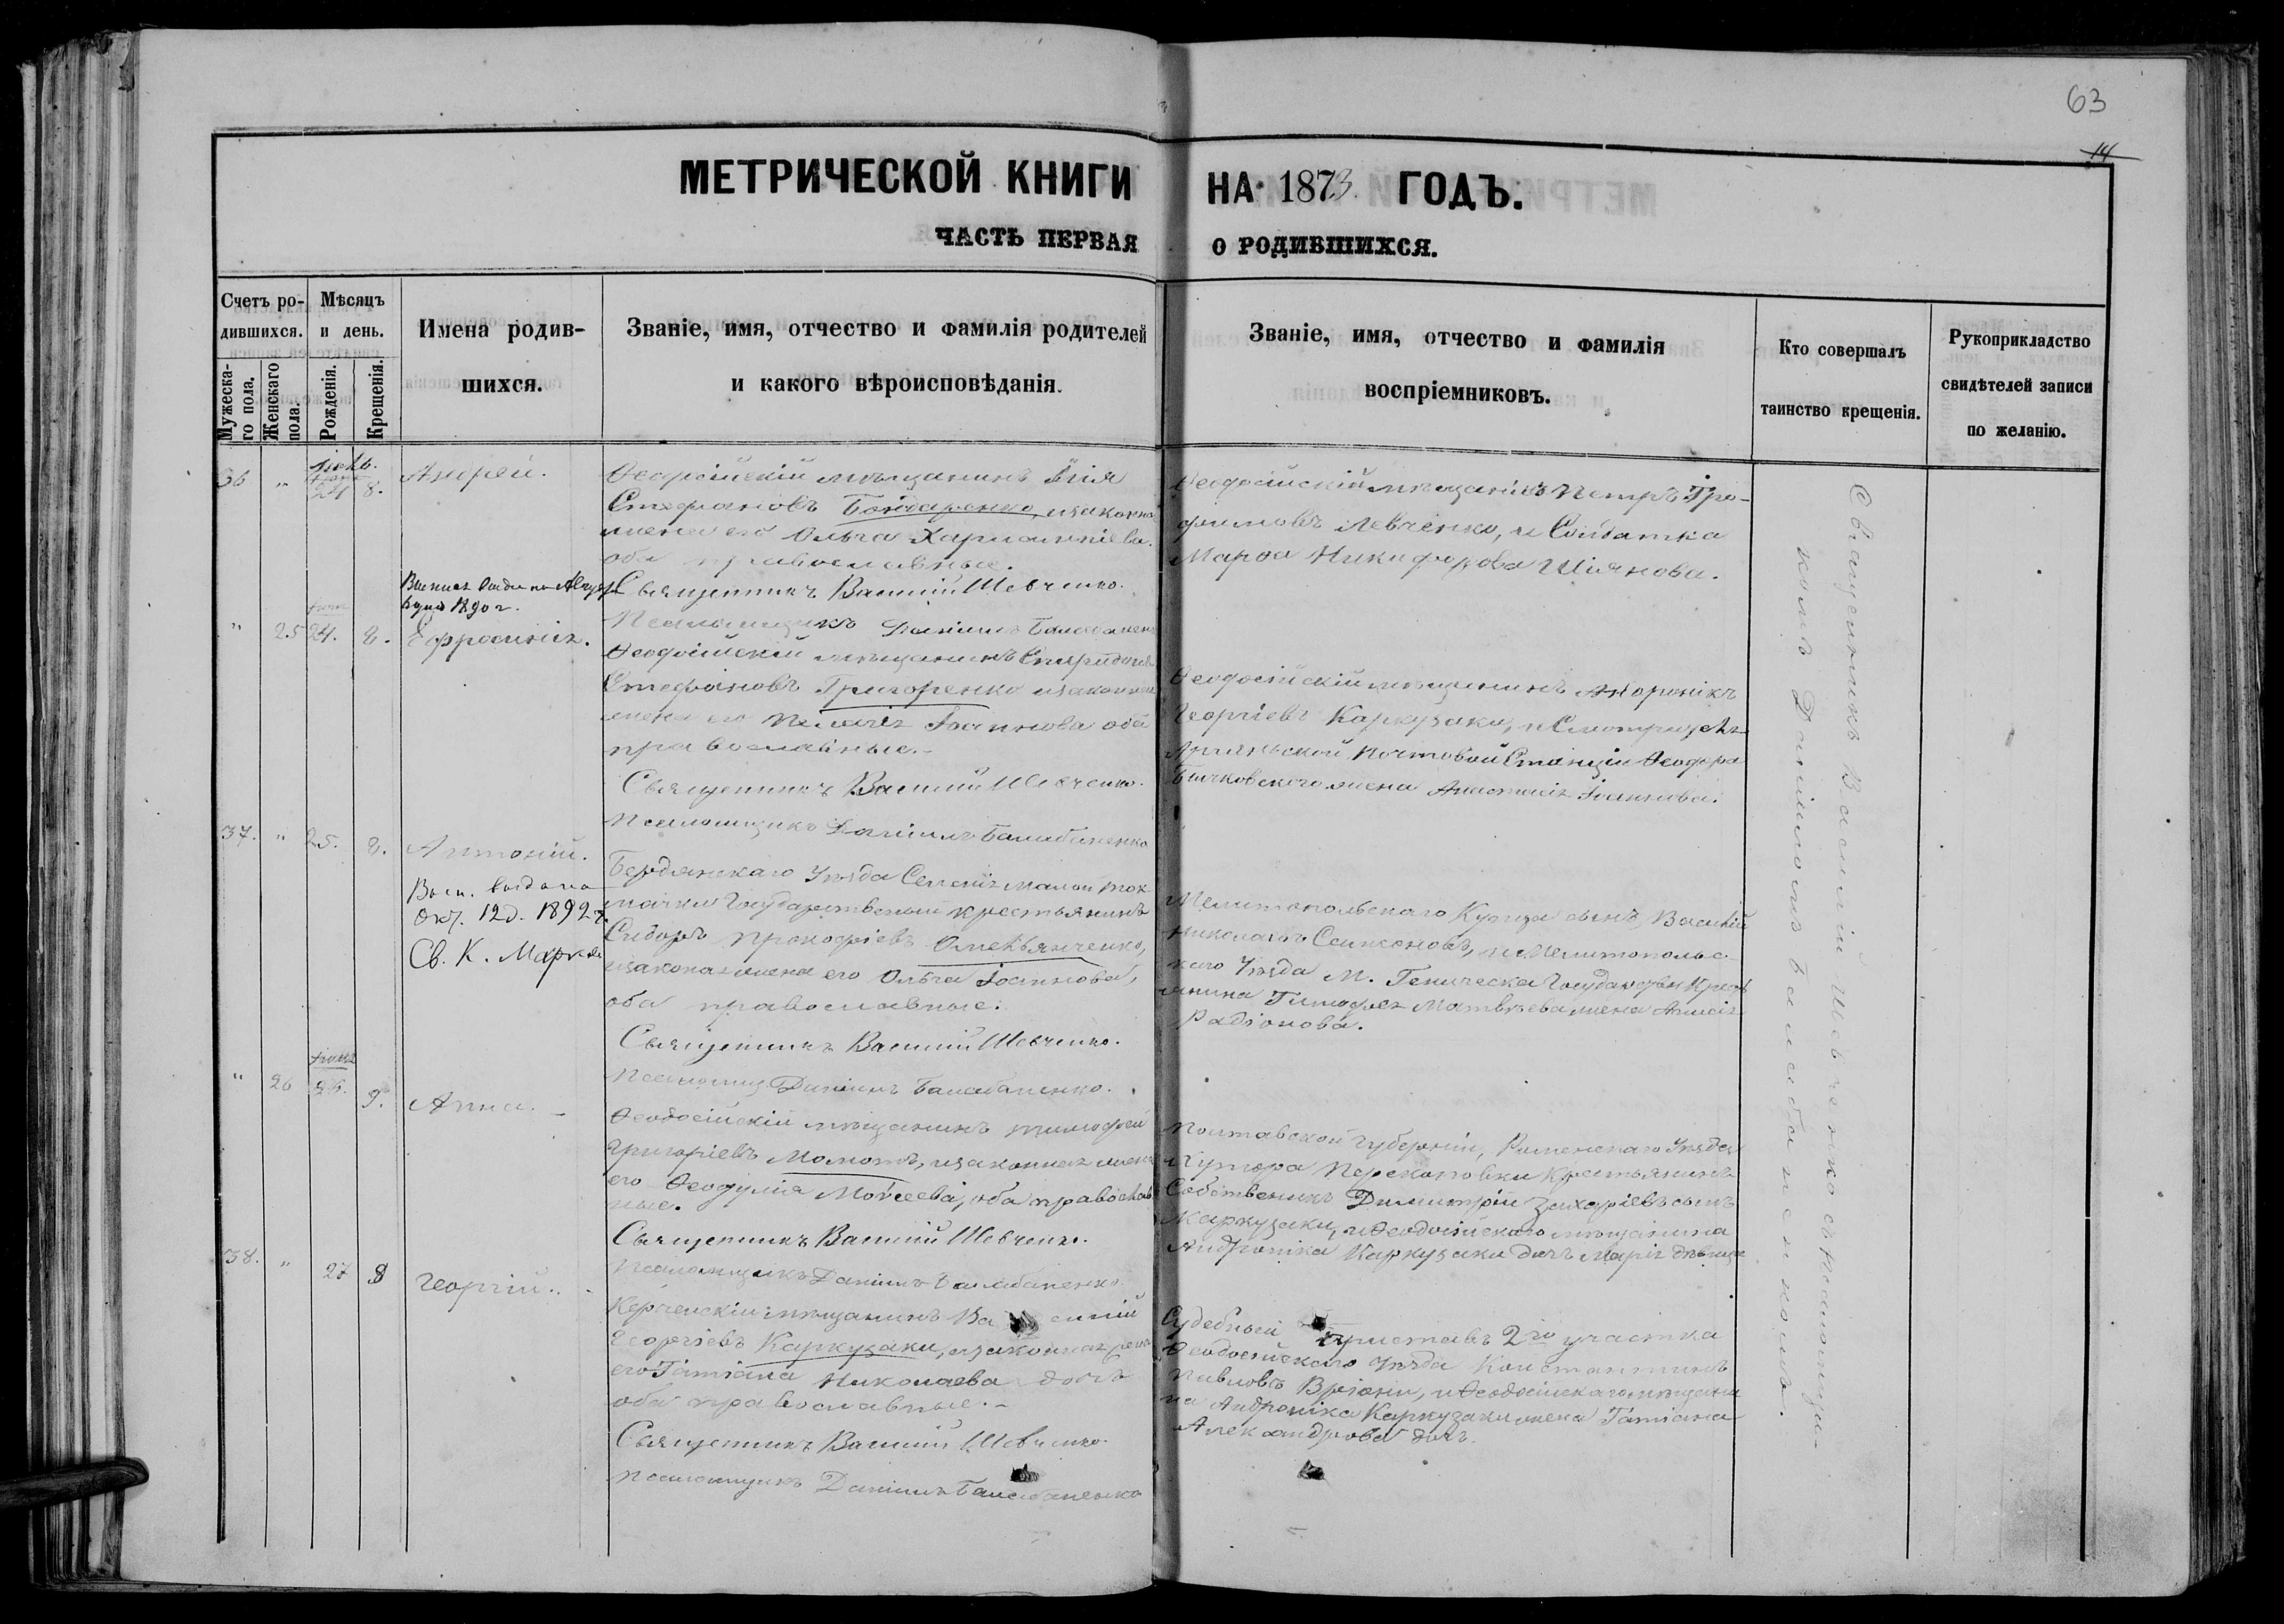 63
14
МЕТРИЧЕСКОЙ КНИГИ НА 1873 ГОДЪ.
ЧАСТЬ ПЕРВАЯ О РОДИВШИХСЯ.
Счетъ ро-
дившихся.
Мужеска-
го пола.
Женскаго
пола.
Мѣсяцъ
и день.
Рожденія.
Крещенія.
Имена родив-
шихся.
Званіе, имя, отчество и фамилія родителей
и какого вѣроисповѣданія.
Званіе, имя, отчество и фамилія
воспріемниковъ.
Кто совершалъ
таинство крещенія.
Рукоприкладство
свидѣтелей записи
по желанію.
36 " 24 8. Андрей.
Ѳеодосійскій мѣщанинъ Илія
Стефановъ Бондаренко, и законная
жена его Ольга
оба православные.
Священникъ Василій Шевченко.
Псаломщикъ Даніилъ Балабаненко
Ѳеодосійскій мѣщанинъ Петръ Тро-
фимовъ Левченко, и Солдатка
Марѳа Никифорова Шіянова.
1890 г.
" 25 24. 8. Ефросинія.
Ѳеодосійскій мѣщанинъ Спиридонъ
Стефановъ Григоренко и законная
жена его Пелагія Іоаннова оба
православные.-
Священникъ Василій Шевченко.
Псаломщикъ Даніилъ Балабаненко
Ѳеодосійскій мѣщанинъ Андроникъ
Георгіевъ Каркузаки, и Смотрителя
Почтовой Станціи Ѳеодора
жена Анастасія Іоаннова.
37. " 25. 8. Антоній.
Вып. выдана
Окт. 12 д. 1892 г.
Св. К. Марков
Бердянскаго Уѣзда Селенія Малой Ток-
мачки Государственный крестьянинъ
Сидоръ Прокофіевъ Омельянченко,
и законая жена его Ольга Іоаннова,
оба православные.
Священникъ Василій Шевченко.
Псаломщ. Даніилъ Балабаненко.
Мелитопольскаго Купца сынъ Василій
Николаевъ и Мелитопольс-
каго Уѣзда М. Геническа
Тимофея Матвѣева жена
Радіонова.
" 26 9. Анна.-
Ѳеодосійскій мѣщанинъ Тимофей
Григоріевъ Момотъ, и законная жена
его Ѳеодулія Моисеева, оба православ-
ные.
Священникъ Василій Шевченко.
Псаломщикъ Даніилъ Балабаненко.
Полтавской губерніи, Роменскаго Уѣзда
Хутора Перекоповки Крестьянинъ
Собственикъ Димитрій Захаріевъ сынъ
Каркузаки, и Ѳеодосійскаго мѣщанина
Андроника Каркузаки дочь Марія дѣвица
38. " 27 8 Георгій.
Керченскій мѣщанинъ Василій
Георгіевъ Каркузаки, и законная жена
его Татіана Николаева дочь
оба православные.-
Священникъ Василій Шевченко.
Псаломщикъ Даніилъ Балабаненко
Судебный Приставъ 2го участка
Ѳеодосійскаго Уѣзда Константинъ
Павловъ и Ѳеодосійскаго мѣщани-
на Андроника Каркузаки жена Татіана
Александрова дочь.
Священникъ Василій Шевченко съ псаломщи-
комъ Даніиломъ Балабаненкомъ.